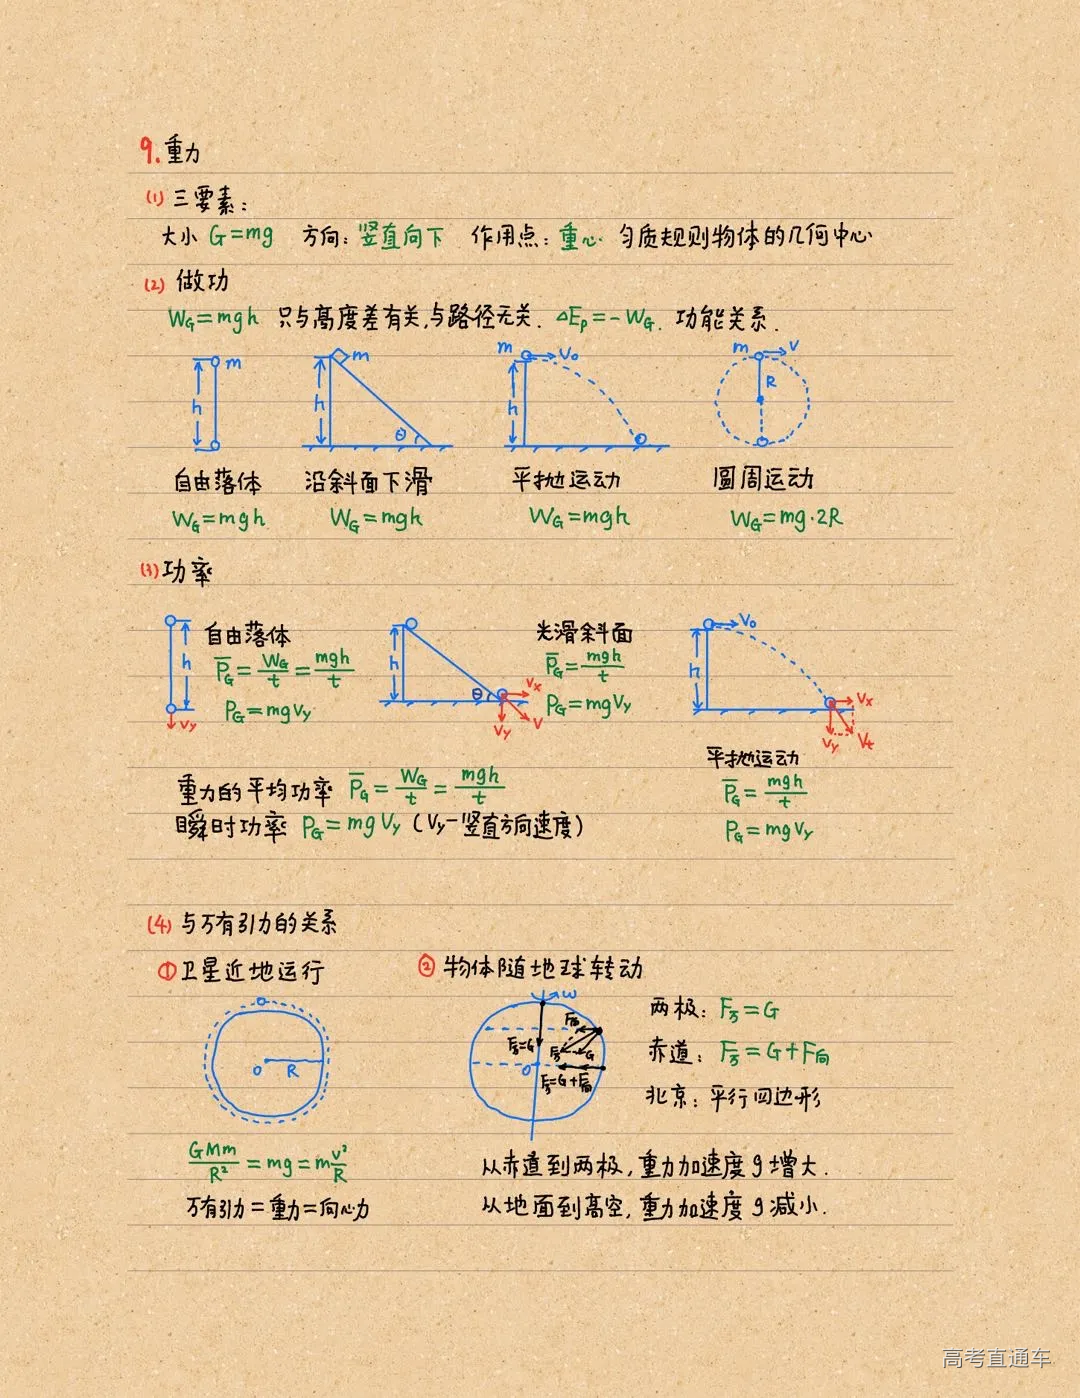 9.重力
(1) 三要素：
大小 G=mg 方向：竖直向下 作用点：重心 匀质规则物体的几何中心
(2) 做功
W_G=mgh 只与高度差有关,与路径无关. △E_p=-W_G. 功能关系.
m h
m h θ
m v₀ h
m v R
自由落体 沿斜面下滑 平抛运动 圆周运动
W_G=mgh W_G=mgh W_G=mgh W_G=mg·2R
(3) 功率
h v_y
自由落体
P̅_G=W_G/t=mgh/t
P_G=mgv_y
h θ v_x v_y v
光滑斜面
P̅_G=mgh/t
P_G=mgv_y
v₀ h v_x v_y v_t
平抛运动
P̅_G=mgh/t
P_G=mgv_y
重力的平均功率 P̅_G=W_G/t=mgh/t
瞬时功率 P_G=mgv_y (v_y-竖直方向速度)
(4) 与万有引力的关系
① 卫星近地运行 ② 物体随地球转动
O R
ω F向 F万=G F万 G O F万=G+F向
两极：F万=G
赤道：F万=G+F向
北京：平行四边形
GMm/R²=mg=mv²/R
万有引力=重力=向心力
从赤道到两极,重力加速度g增大.
从地面到高空,重力加速度g减小.
高考直通车